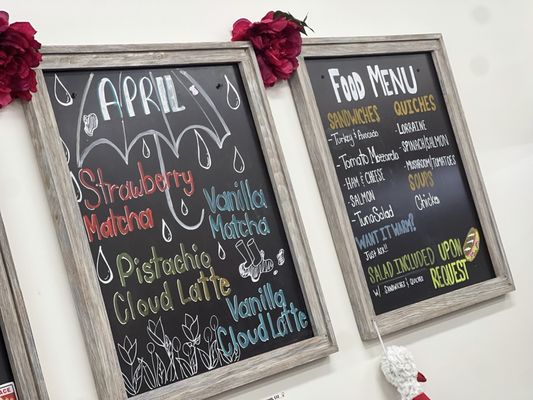 APRIL
Strawberry
Matcha
Vanilla
Matcha
Pistachio
Cloud Latte
Vanilla
Cloud Latte
FOOD MENU
SANDWICHES
- Turkey & Avocado
- Tomato Mozzarella
- HAM & CHEESE
- SALMON
- Tuna Salad
WANT IT WARM?
JUST ASK!!
QUICHES
- LORRAINE
- SPINACH/SALMON
- MUSHROOM/TOMATOES
SOUPS
Chicken
SALAD INCLUDED
W/ SANDWICHES & QUICHES
UPON
REQUEST